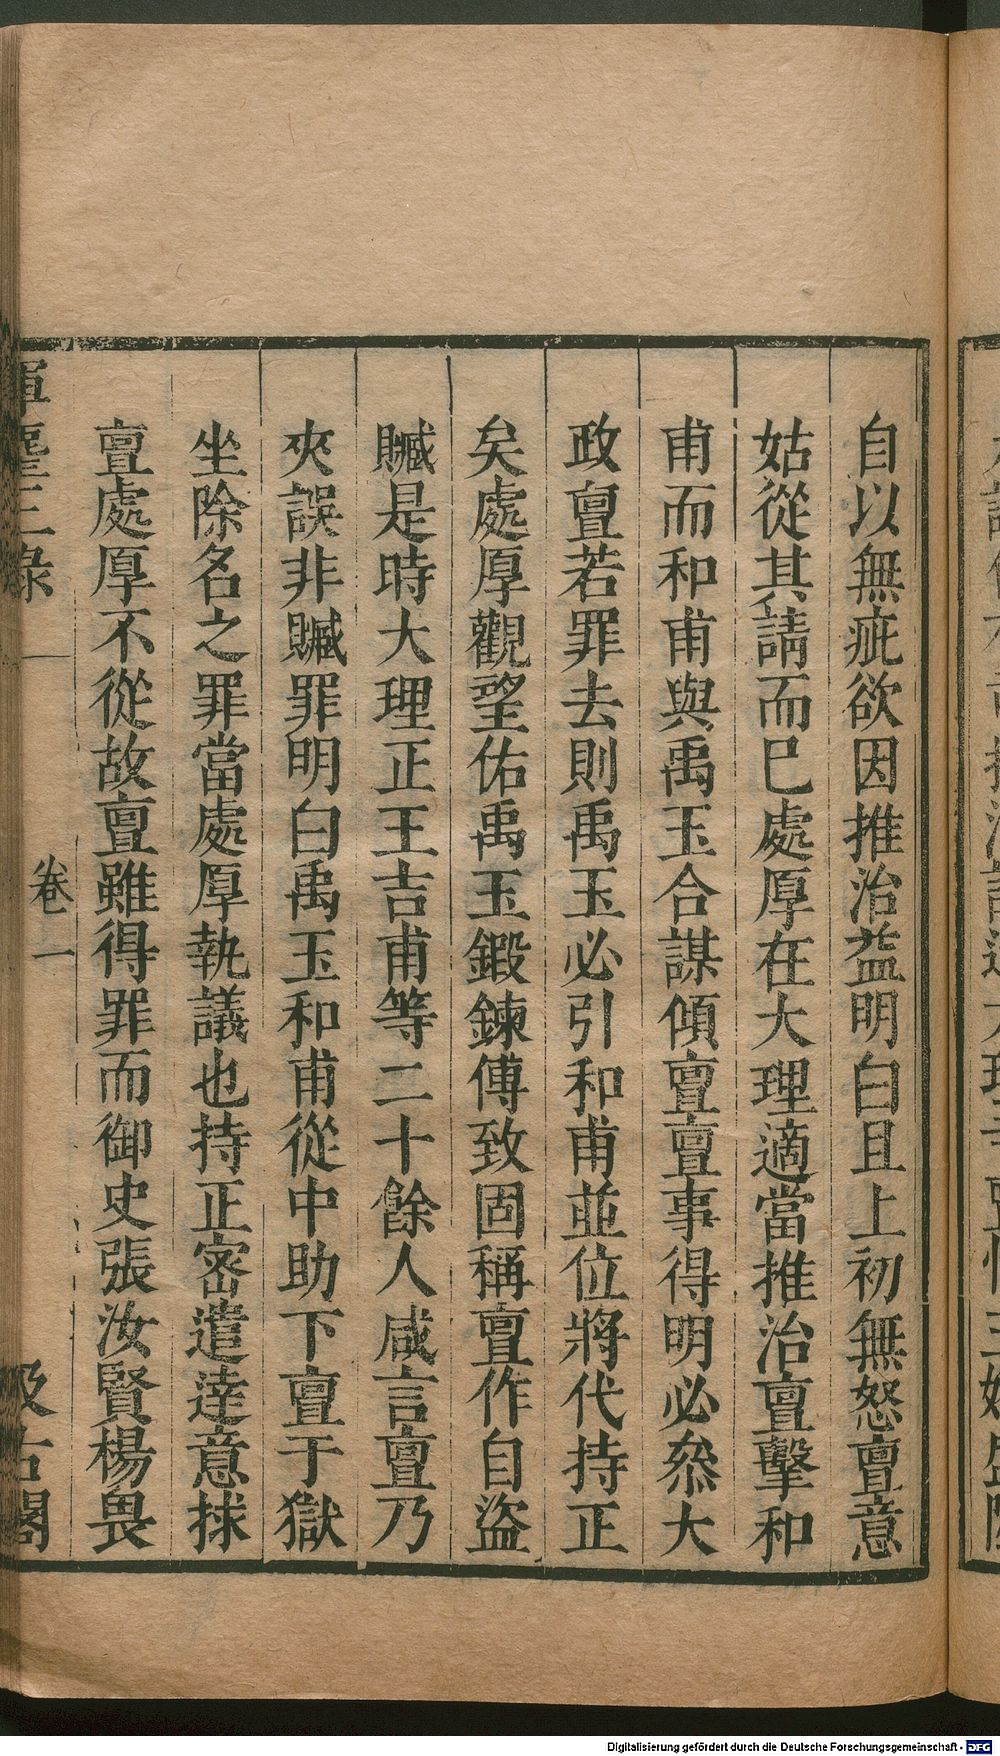 自以無疵欲因推治益明白且上初無怒亶意
姑從其請而巳處厚在大理適當推治亶擊和
甫而和甫與禹玉合謀傾亶亶事得明必叅大
政亶若罪去則禹玉必引和甫並位將代持正
矣處厚觀望佑禹玉鍛鍊傅致固稱亶作自盜
贓是時大理正王吉甫等二十餘人咸言亶乃
夾誤非贓罪明白禹玉和甫從中助下亶于獄
坐除名之罪當處厚執議也持正密遣達意捄
亶處厚不從故亶雖得罪而御史張汝賢楊畏
揮麈三錄
卷一
汲古閣
Digitalisierung gefördert durch die Deutsche Forschungsgemeinschaft - DFG